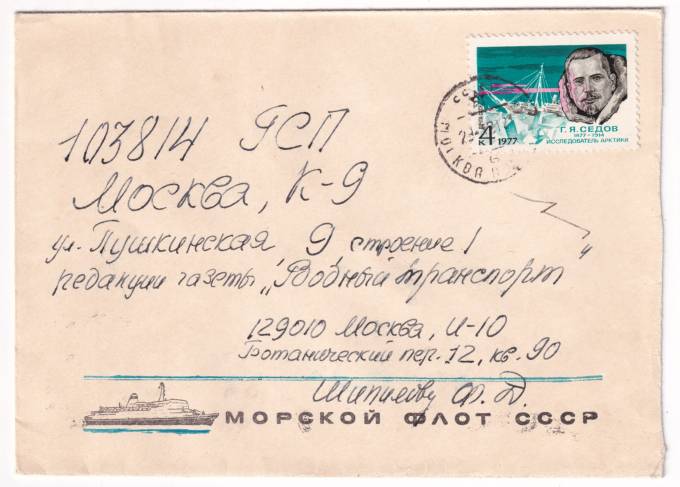 4к 1977
Г.Я.СЕДОВ
1877-1914
ИССЛЕДОВАТЕЛЬ АРКТИКИ
МОСКВА
103814 ГСП
Москва, К-9
ул. Пушкинская 9, строение 1
редакции газеты „Водный транспорт"
129010 Москва, И-10
Ботанический пер. 12, кв. 90
Ф. Д.
МОРСКОЙ ФЛОТ СССР